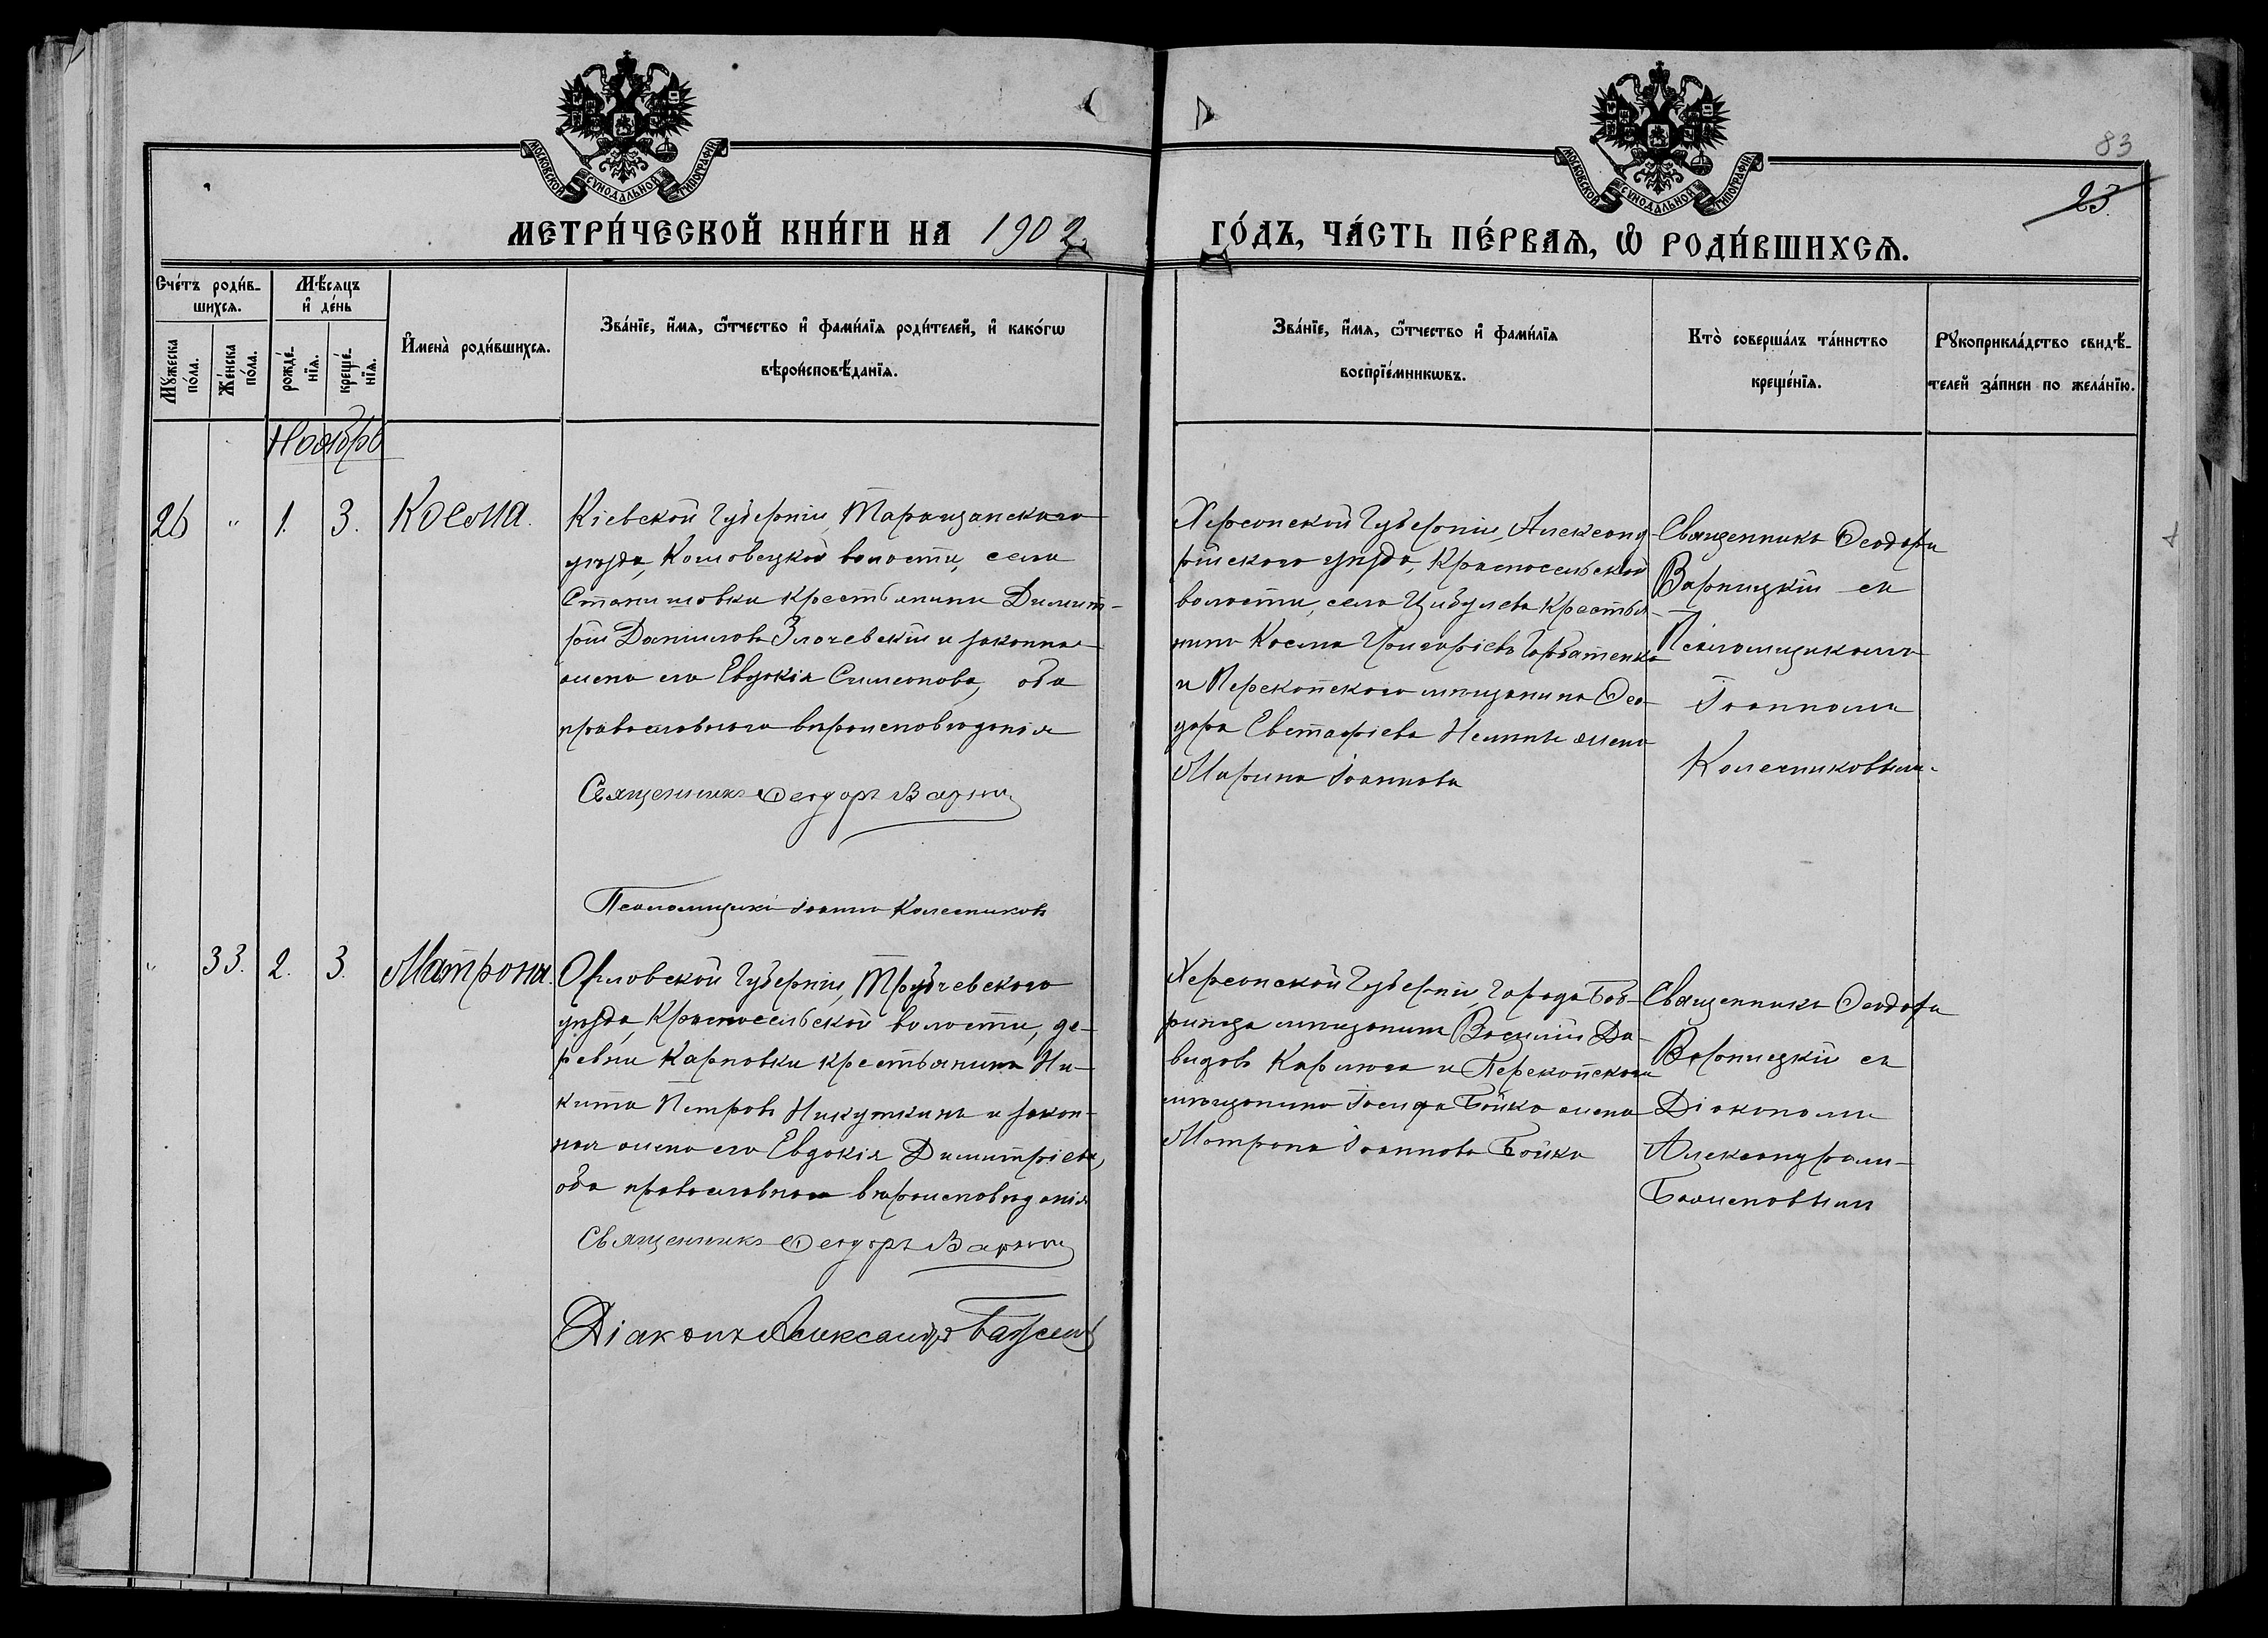 МОСКОВСКОЙ СѴНОДАЛЬНОЙ ТИПОГРАФІИ
МОСКОВСКОЙ СѴНОДАЛЬНОЙ ТИПОГРАФІИ
83
23.
МЕТРИ́ЧЕСКОЙ КНИ́ГИ НА 1902
ГО́ДЪ, ЧА́СТЬ ПЕ́РВАѦ, Ѡ҆ РОДИ́ВШИХСѦ.
Сче́тъ роди́в-
шихсѧ.
Мꙋ́жеска
по́ла.
Же́нска
по́ла.
Мѣ́сѧцъ
и҆ де́нь
рожде́-
нїѧ.
креще́-
нїѧ.
И҆мена̀ роди́вшихсѧ.
Зва́нїе, и҆́мѧ, ѻ҆́тчество и҆ фами́лїѧ роди́телей, и҆ како́гѡ
вѣроисповѣ́данїѧ.
Зва́нїе, и҆́мѧ, ѻ҆́тчество и҆ фами́лїѧ
воспрїе́мникѡвъ.
Кто̀ соверша́лъ та́инство
креще́нїѧ.
Рꙋкоприкла́дство свидѣ́-
телей за́писи по жела́нїю.
Ноябрь
26 " 1. 3. Косма.
Кіевской Губерніи Таращанскаго
уѣзда, волости, села
Станишовки крестьянинъ Димит-
рій Даніиловъ Злочевскій и законная
жена его Евдокія Симеонова, оба
православнаго вѣроисповѣданія
Священникъ Ѳеодоръ
Псаломщикъ Іоаннъ Колесниковъ
Херсонской Губерніи, Александ-
рійскаго уѣзда, Красносельской
волости, села Цибулева крестья-
нинъ Косма Григоріевъ Горбатенко
и Перекопскаго мѣщанина Ѳео-
дора Евстафіева жена
Марина Іоаннова
Священникъ Ѳеодоръ
Варницкій съ
Псаломщикомъ
Іоанномъ
Колесниковымъ.
" 33. 2. 3. Матрона.
Орловской Губерніи, Трубчевскаго
уѣзда, Красносельской волости, де-
ревни Карповки крестьянинъ Ни-
кита Петровъ Никуткинъ и закон-
ная жена его Евдокія Димитріева,
оба православнаго вѣроисповѣданія
Священникъ Ѳеодоръ
Діаконъ Александръ Баженовъ
Херсонской Губерніи, города Боб-
ринца мѣщанинъ Василій Да-
видовъ и Перекопскаго
мѣщанина Іосифа Бойко жена
Матрона Іоаннова Бойко
Священникъ Ѳеодоръ
Варницкій съ
Діакономъ
Александромъ
Баженовымъ